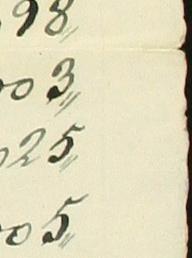 98
003
025
005